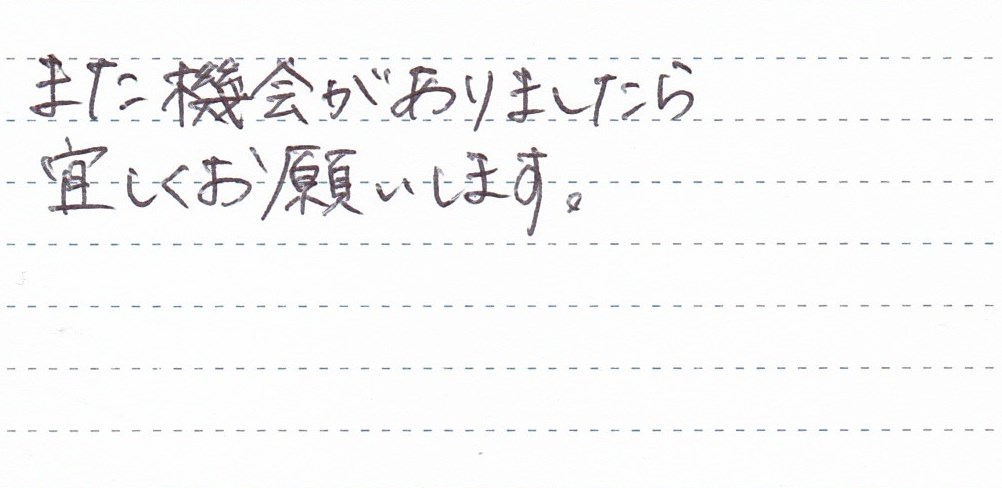 また機会がありましたら
宜しくお願いします。